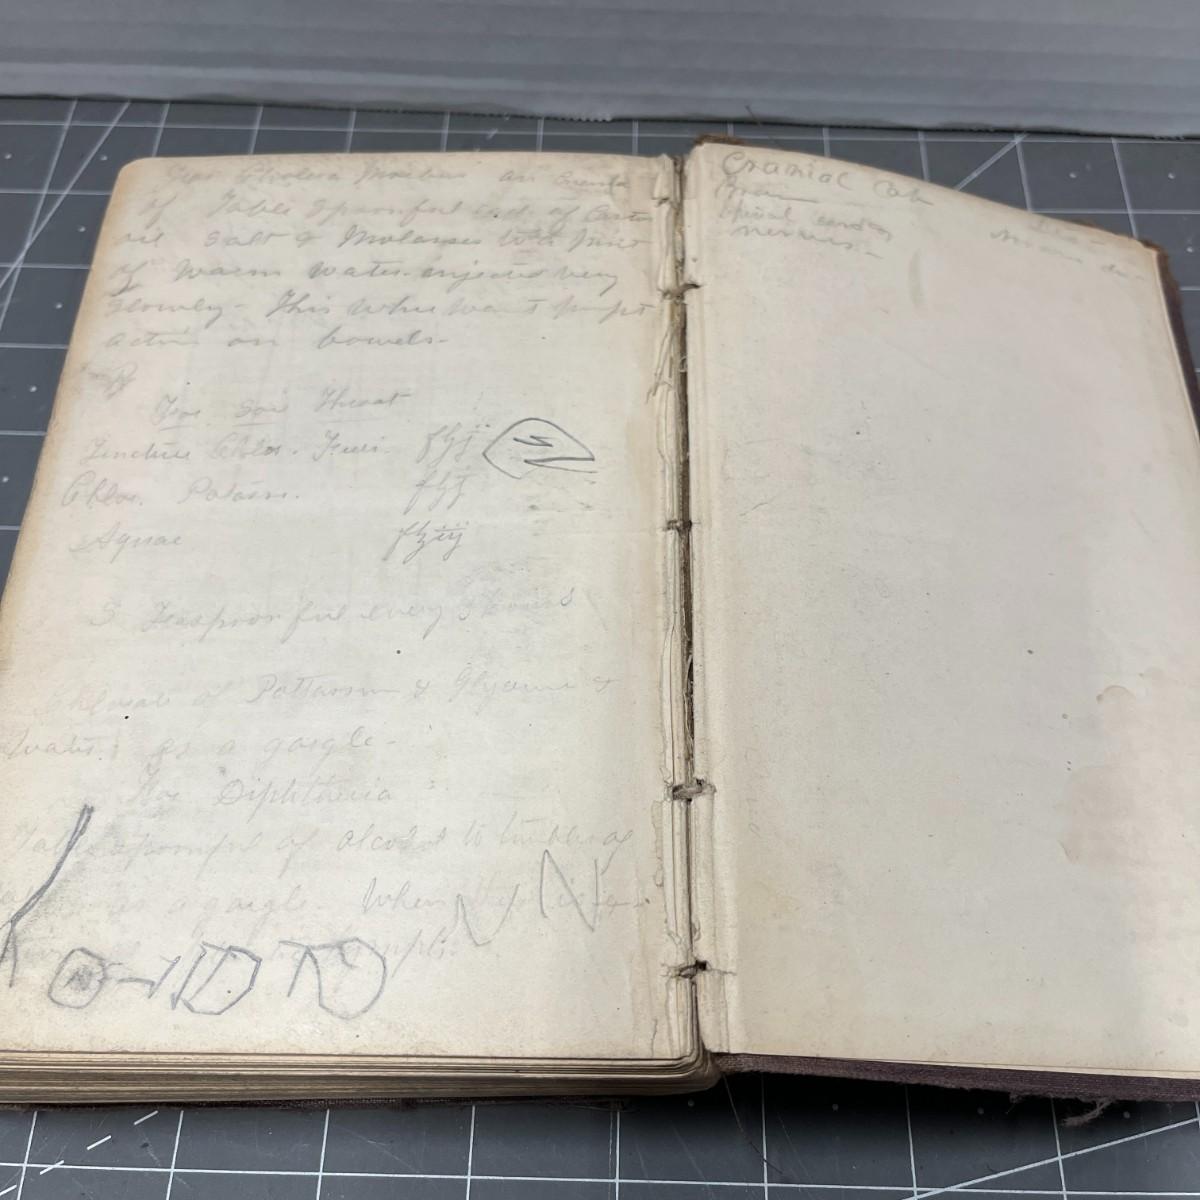 For Cholera Morbus an enema
of Table spoonful each of Castor
oil Salt & Molasses to a pint
of warm water injected very
slowly - This when want prompt
action on bowels -
℞
For Sore Throat
Tincture Chlor. Ferri. fʒij
Chlor. Potass. fʒj
Aquae fʒiij
S Teaspoonful every 3 hours
Chlorate of Pottassium & Glycerine &
Water. as a gargle -
For Diphtheria
Tablespoonful of alcohol to tumbler of
as a gargle. When
N N
Cranial Cab
Brain
Spinal cord &
nerves -